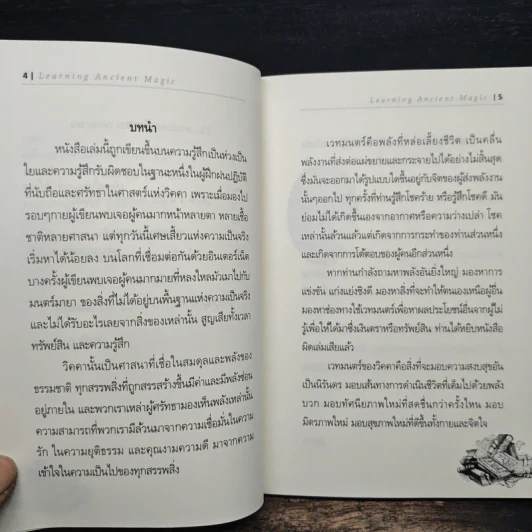 4 | Learning Ancient Magic
บทนำ
หนังสือเล่มนี้ถูกเขียนขึ้นบนความรู้สึกเป็นห่วงเป็น
ใยและความรู้สึกรับผิดชอบในฐานะหนึ่งในผู้ฝึกฝนปฏิบัติ
ที่นับถือและศรัทธาในศาสตร์แห่งวิคคา เพราะเมื่อมองไป
รอบๆกายผู้เขียนพบเจอผู้คนมากหน้าหลายตา หลายเชื้อ
ชาติหลายศาสนา แต่ทุกวันนี้เศษเสี้ยวแห่งความเป็นจริง
เริ่มหาได้น้อยลง บนโลกที่เชื่อมต่อกันด้วยอินเตอร์เน็ต
บางครั้งผู้เขียนพบเจอผู้คนมากมายที่หลงใหลมัวเมาไปกับ
มนตร์มายา ของสิ่งที่ไม่ได้อยู่บนพื้นฐานแห่งความเป็นจริง
และไม่ได้รับอะไรเลยจากสิ่งของเหล่านั้น สูญเสียทั้งเวลา
ทรัพย์สิน และความรู้สึก
วิคคานั้นเป็นศาสนาที่เชื่อในสมดุลและพลังของ
ธรรมชาติ ทุกสรรพสิ่งที่ถูกสรรสร้างขึ้นมีค่าและมีพลังซ่อน
อยู่ภายใน และพวกเราเหล่าผู้ศรัทธามองเห็นพลังเหล่านั้น
ความสามารถที่พวกเรามีล้วนมาจากความเชื่อมั่นในความ
รัก ในความยุติธรรม และคุณงามความดี มาจากความ
เข้าใจในความเป็นไปของทุกสรรพสิ่ง
Learning Ancient Magic | 5
เวทมนตร์คือพลังที่หล่อเลี้ยงชีวิต เป็นคลื่น
พลังงานที่ส่งต่อแผ่ขยายและกระจายไปได้อย่างไม่สิ้นสุด
ซึ่งมันจะออกมาได้รูปแบบใดขึ้นอยู่กับจิตของผู้ส่งพลังงาน
นั้นๆออกไป ทุกครั้งที่ท่านรู้สึกโชคร้าย หรือรู้สึกโชคดี มัน
ย่อมไม่ได้เกิดขึ้นเองจากอากาศหรือความว่างเปล่า โชค
เหล่านั้นล้วนแล้วแต่เกิดจากการกระทำของท่านส่วนหนึ่ง
และเกิดจากการโต้ตอบของผู้คนอีกส่วนหนึ่ง
หากท่านกำลังถามหาพลังอันยิ่งใหญ่ มองหาการ
แข่งขัน แก่งแย่งชิงดี มองหาสิ่งที่จะทำให้ตนเองเหนือผู้อื่น
มองหาช่องทางใช้เวทมนตร์เพื่อหาผลประโยชน์อื่นจากผู้ไม่
รู้เพื่อให้ได้มาซึ่งเงินตราหรือทรัพย์สิน ท่านได้หยิบหนังสือ
ผิดเล่มเสียแล้ว
เวทมนตร์ของวิคคาคือสิ่งที่จะมอบความสงบสุขอัน
เป็นนิรันดร มอบเส้นทางการดำเนินชีวิตที่เต็มไปด้วยพลัง
บวก มอบทัศนียภาพใหม่ที่สดชื่นกว่าครั้งไหน มอบ
มิตรภาพใหม่ มอบสุขภาพใหม่ที่ดีขึ้นทั้งกายและจิตใจ